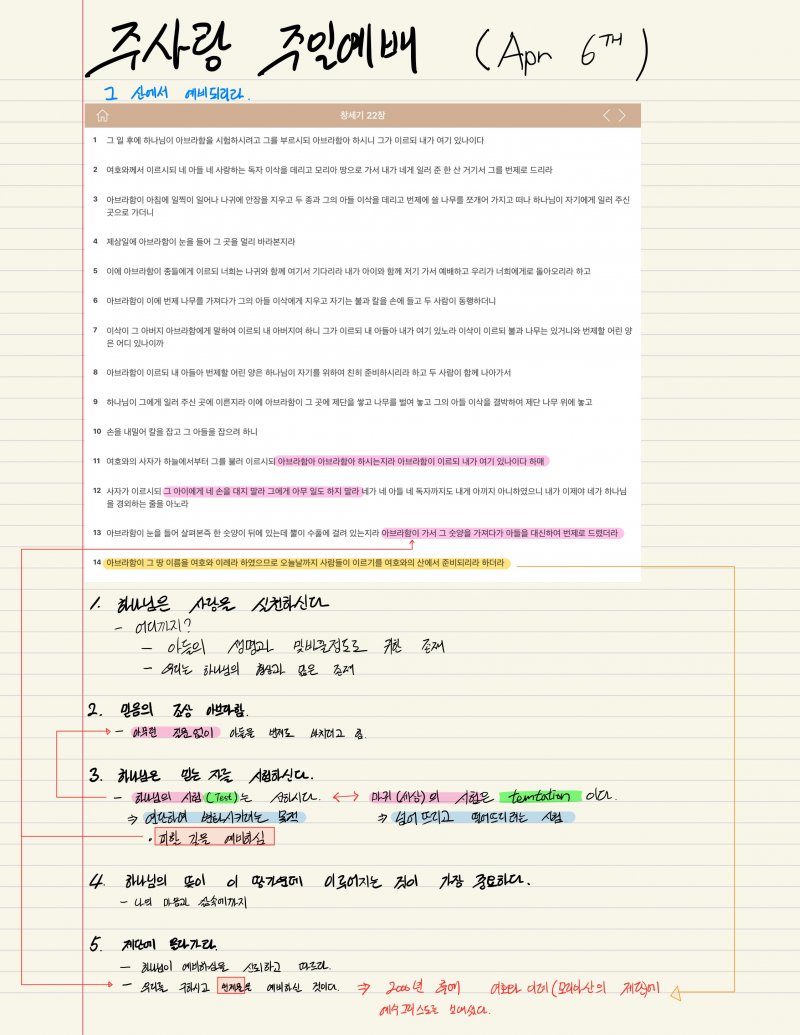 주사랑 주일예배 (Apr 6TH)
그 산에서 예비되리라.
창세기 22장
1 그 일 후에 하나님이 아브라함을 시험하시려고 그를 부르시되 아브라함아 하시니 그가 이르되 내가 여기 있나이다
2 여호와께서 이르시되 네 아들 네 사랑하는 독자 이삭을 데리고 모리아 땅으로 가서 내가 네게 일러 준 한 산 거기서 그를 번제로 드리라
3 아브라함이 아침에 일찍이 일어나 나귀에 안장을 지우고 두 종과 그의 아들 이삭을 데리고 번제에 쓸 나무를 쪼개어 가지고 떠나 하나님이 자기에게 일러 주신
곳으로 가더니
4 제삼일에 아브라함이 눈을 들어 그 곳을 멀리 바라본지라
5 이에 아브라함이 종들에게 이르되 너희는 나귀와 함께 여기서 기다리라 내가 아이와 함께 저기 가서 예배하고 우리가 너희에게로 돌아오리라 하고
6 아브라함이 이에 번제 나무를 가져다가 그의 아들 이삭에게 지우고 자기는 불과 칼을 손에 들고 두 사람이 동행하더니
7 이삭이 그 아버지 아브라함에게 말하여 이르되 내 아버지여 하니 그가 이르되 내 아들아 내가 여기 있노라 이삭이 이르되 불과 나무는 있거니와 번제할 어린 양
은 어디 있나이까
8 아브라함이 이르되 내 아들아 번제할 어린 양은 하나님이 자기를 위하여 친히 준비하시리라 하고 두 사람이 함께 나아가서
9 하나님이 그에게 일러 주신 곳에 이른지라 이에 아브라함이 그 곳에 제단을 쌓고 나무를 벌여 놓고 그의 아들 이삭을 결박하여 제단 나무 위에 놓고
10 손을 내밀어 칼을 잡고 그 아들을 잡으려 하니
11 여호와의 사자가 하늘에서부터 그를 불러 이르시되 아브라함아 아브라함아 하시는지라 아브라함이 이르되 내가 여기 있나이다 하매
12 사자가 이르시되 그 아이에게 네 손을 대지 말라 그에게 아무 일도 하지 말라 네가 네 아들 네 독자까지도 내게 아끼지 아니하였으니 내가 이제야 네가 하나님
을 경외하는 줄을 아노라
13 아브라함이 눈을 들어 살펴본즉 한 숫양이 뒤에 있는데 뿔이 수풀에 걸려 있는지라 아브라함이 가서 그 숫양을 가져다가 아들을 대신하여 번제로 드렸더라
14 아브라함이 그 땅 이름을 여호와 이레라 하였으므로 오늘날까지 사람들이 이르기를 여호와의 산에서 준비되리라 하더라
1. 하나님은 사랑을 실천하신다
- 어디까지?
- 아들의 생명과 맞바꾼정도로 귀한 존재
- 우리는 하나님의 형상과 닮은 존재
2. 믿음의 조상 아브라함.
- 아무런 질문없이 아들을 번제로 바치려고 함.
3. 하나님은 믿는 자를 시험하신다.
- 하나님의 시험 (Test)는 선하시다. ↔ 마귀(세상)의 시험은 temtation 이다.
⇒ 연단하여 변화시키려는 목적 ⇒ 넘어뜨리고 떨어뜨리려는 시험
• 피할 길을 예비하심
4. 하나님의 뜻이 이 땅가운데 이루어지는 것이 가장 중요하다.
- 나의 마음과 삶속에까지
5. 제단에 올라가라.
- 하나님이 예비하심을 신뢰하고 따르라.
- 우리를 구하시고 번제물을 예비하신 것이다. ⇒ 2000년 후에 여호와 이레(모리아산의 제단)에
예수그리스도를 보내셨다.